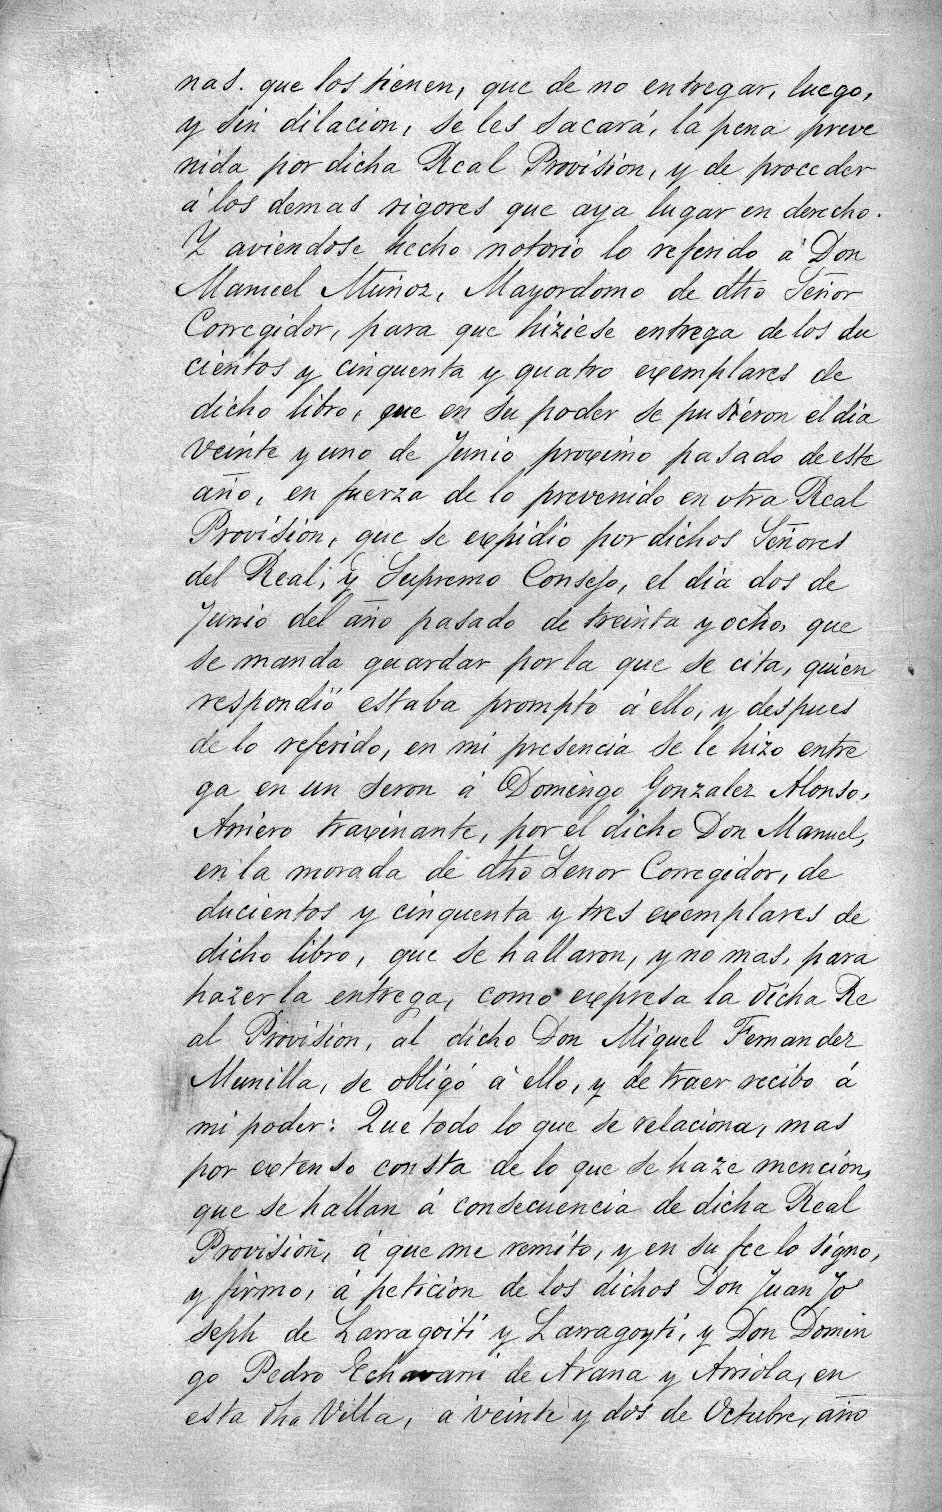 nas. que los tienen, que de no entregar, luego,
y sin dilacion, se les sacará, la pena preve
nida por dicha Real Provision, y de proceder
á los demas rigores que aya lugar en derecho.
Y aviendose hecho notorio lo referido á Don
Manuel Muñoz, Mayordomo de dho Señor
Corregidor, para que hiziese entrega de los du
cientos y cinquenta y quatro exemplares de
dicho libro, que en su poder se pusieron el dia
veinte y uno de Junio proximo pasado de este
año, en fuerza de lo prevenido en otra Real
Provision, que se expidio por dichos Señores
del Real, y Supremo Consejo, el dia dos de
Junio del año pasado de treinta y ocho, que
se manda guardar por la que se cita, quien
respondió estaba prompto á ello, y despues
de lo referido, en mi presencia se le hizo entre
ga en un seron á Domingo Gonzalez Alonso,
Arriero traxinante, por el dicho Don Manuel,
en la morada de dho Señor Corregidor, de
ducientos y cinquenta y tres exemplares de
dicho libro, que se hallaron, y no mas, para
hazer la entrega, como expresa la dicha Re
al Provision, al dicho Don Miguel Fernandez
Munilla, se obligó á ello, y de traer recibo á
mi poder: Que todo lo que se relaciona, mas
por extenso consta de lo que se haze mencion,
que se hallan á consecuencia de dicha Real
Provision, á que me remito, y en su fee lo signo,
y firmo, á peticion de los dichos Don Juan Jo
seph de Larragoiti y Larragoyti, y Don Domin
go Pedro Echavarri de Arana y Arriola, en
esta dha Villa, á veinte y dos de Octubre, año